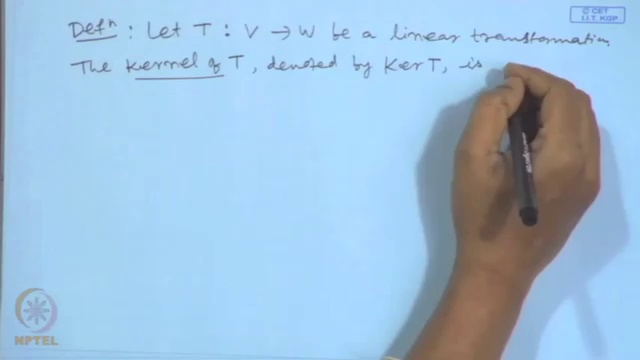 © CET
I.I.T. KGP
Defⁿ : Let T : V → W be a linear transformation.
The kernel of T, denoted by Ker T, is
NPTEL